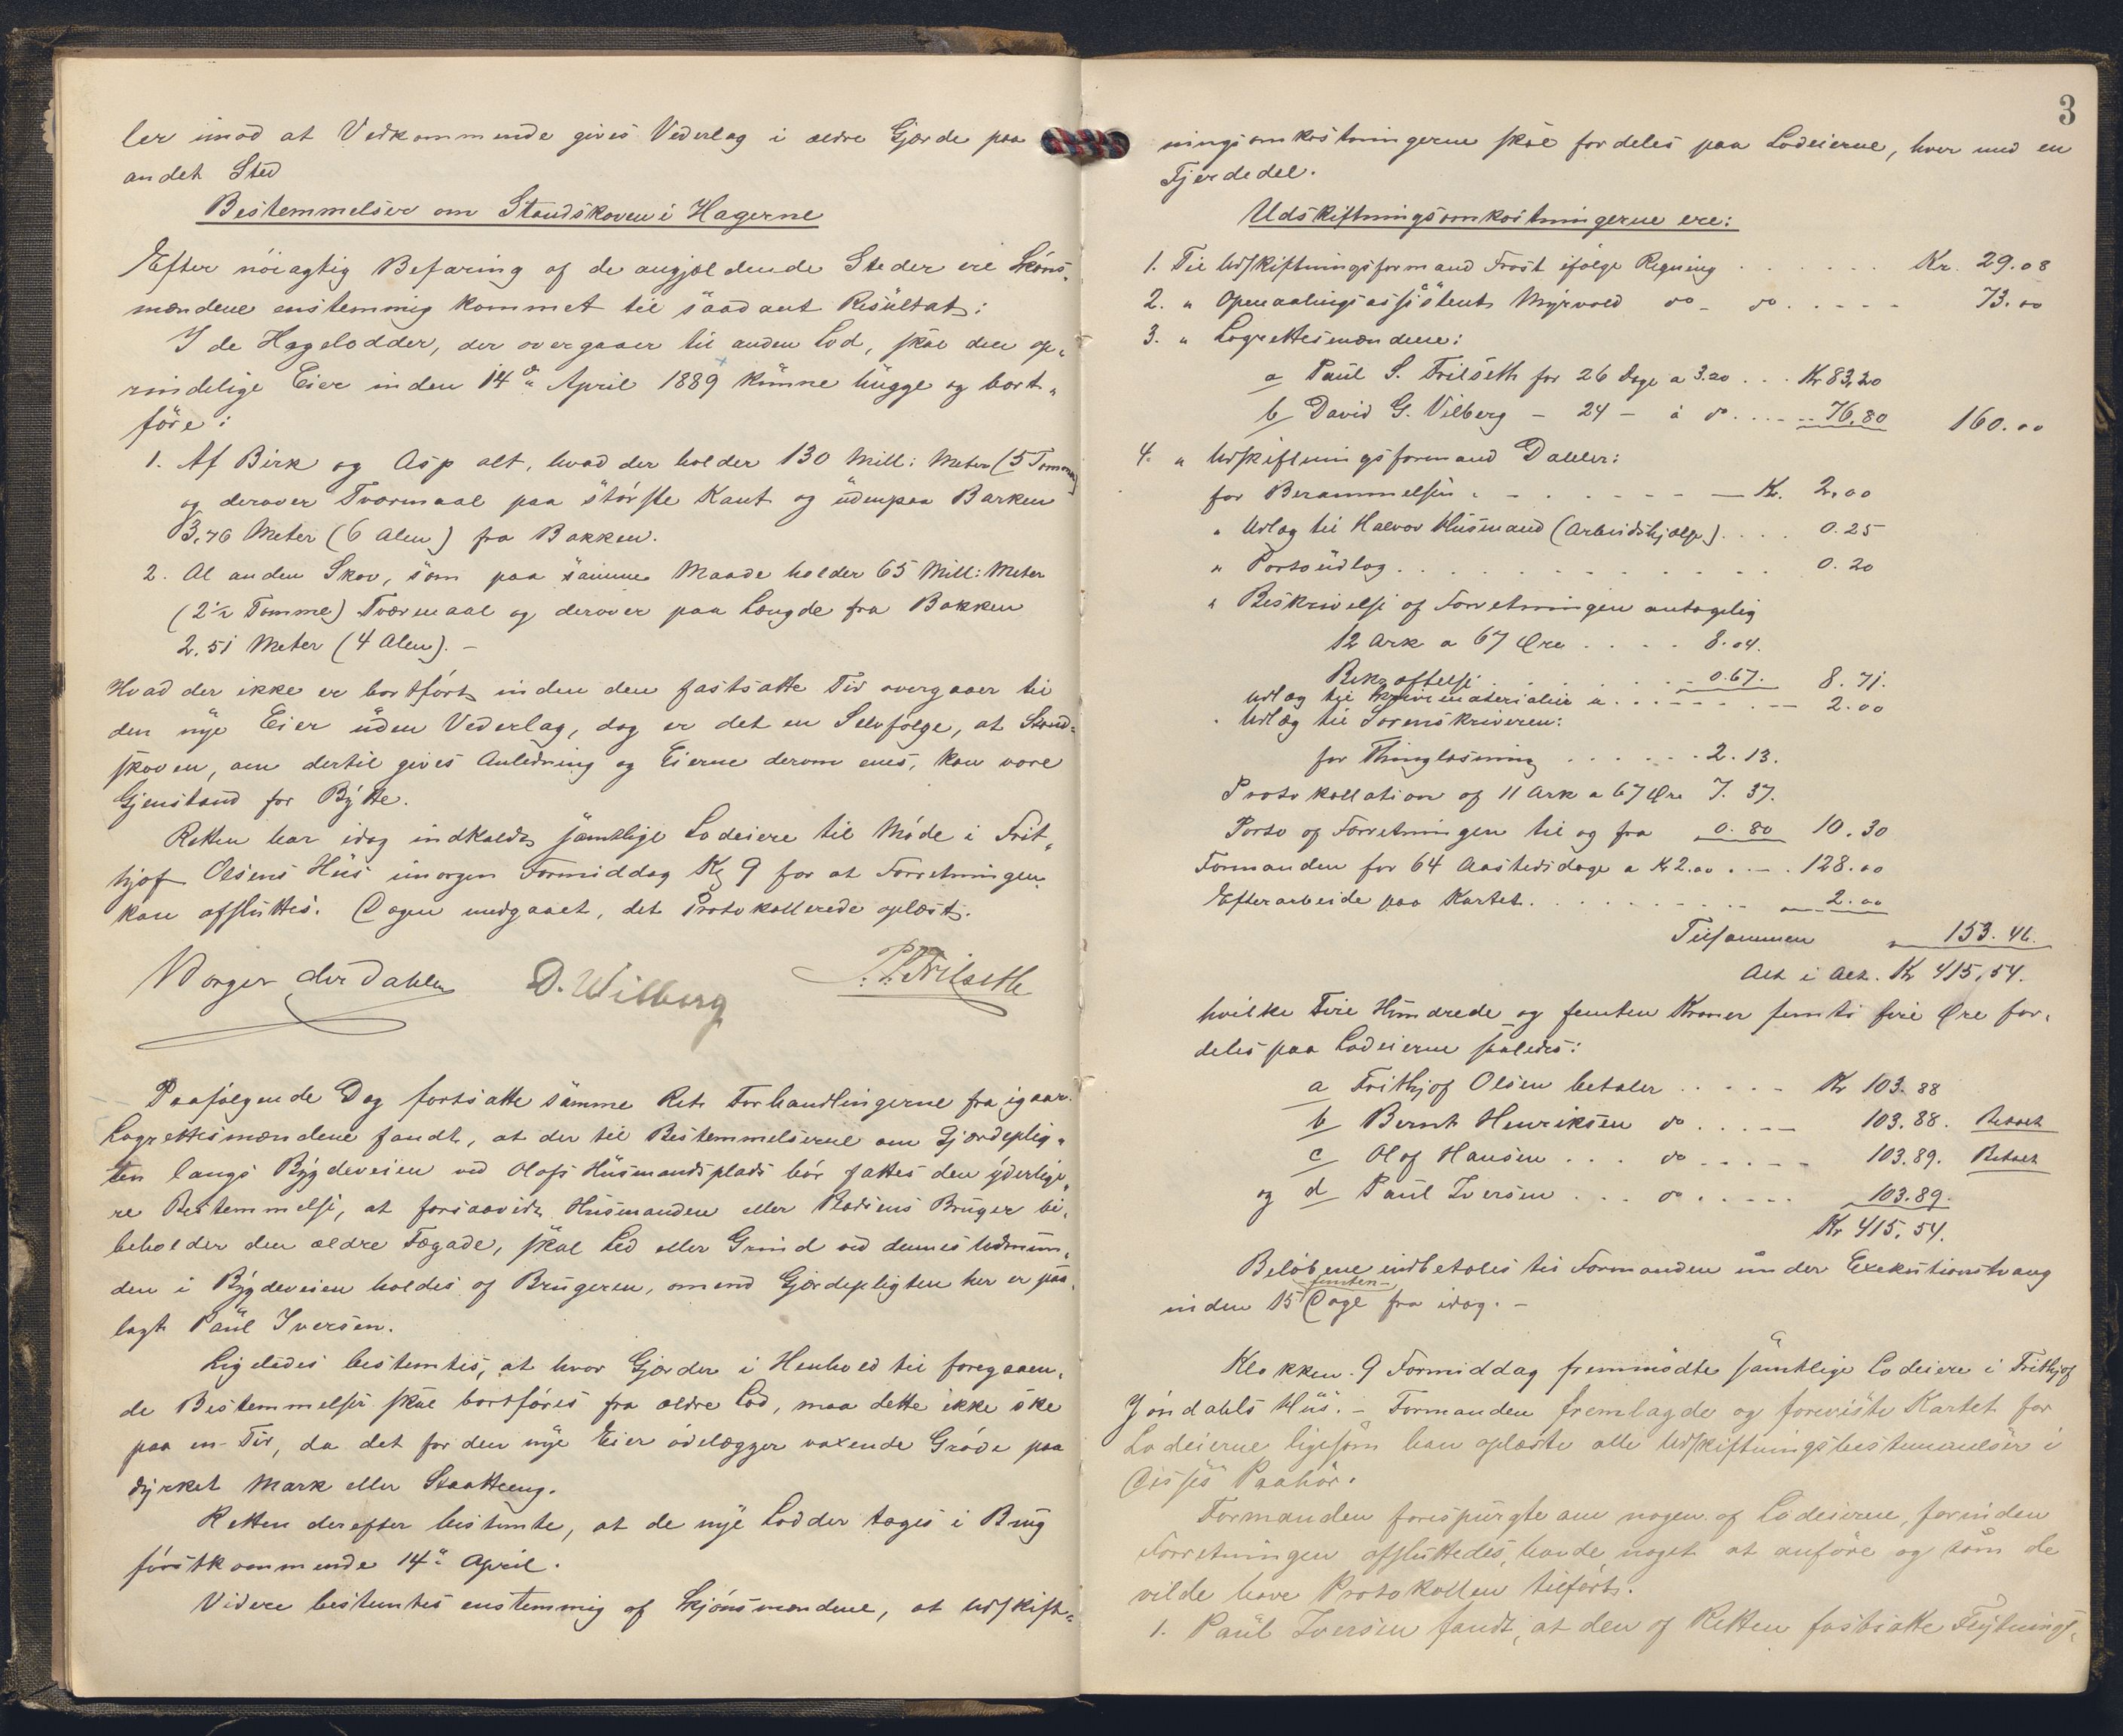 ler imod at Vedkommende gives Vederlag i ældre Gjærde paa
andet Sted
Bestemmelser om Standskoven i Hagerne
Efter nöiagtig Befaring af de angjældende Steder ere Skjöns-
mændene enstemmig kommet til saadant Resultat:
I de Hagelodder, der overgaaer til anden Lod, skal den op-
rindelige Eier inden 14de April 1889 kunne hugge og bort-
före:
1. Af Birk og Asp alt, hvad der holder 130 Mill: Meter (5 Tommer)
og derover Tværmaal paa störste Kant og udenpaa Barken
3,76 Meter (6 Alen) fra Bakken.
2. Al anden Skov, som paa samme Maade holder 65 Mill: Meter
(2½ Tomme) Tværmaal og derover paa Længde fra Bakken
2.51 Meter (4 Alen). -
Hvad der ikke er bortfört inden den fastsatte Tid overgaaer til
den nye Eier uden Vederlag, dog er det en Selvfölge, at Stand-
skoven, om dertil gives Anledning og Eierne derom enes, kan være
Gjenstand for Bytte.
Retten har idag indkaldt samtlige Lodeiere til Möde i Frit-
hjof Olsens Hus imorgen Formiddag Kl 9 for at Forretningen
kan afsluttes. Dagen medgaaet, det Protokollerede oplæst.
Borger Dahl D. Wilberg P. S. Frilseth
Paafölgende Dag fortsatte samme Ret Forhandlingerne fra igaar.
Lagrettesmændene fandt, at der til Bestemmelserne om Gjærdeplig-
ten langs Bygdeveien ved Olofs Husmandsplads bör fattes den yderlige-
re Bestemmelse, at forsaavidt Husmanden eller Pladsens Bruger bi-
beholder den ældre Fægade, skal Led eller Grind ved dennes Udmun-
den i Bygdeveien holdes af Brugeren, omend Gjærdepligten her er paa-
lagt Paul Iversen.
Ligeledes bestemtes, at hvor Gjærder i Henhold til foregaaen-
de Bestemmelser skal bortföres fra ældre Lod, maa dette ikke ske
paa en Tid, da det for den nye Eier ödelægger voxende Gröde paa
dyrket Mark eller Slaatteeng.
Retten derefter bestemte, at de nye Lodder tages i Brug
förstkommende 14de April.
Videre bestemtes enstemmig af Skjönsmændene, at Udskift-
3
ningsomkostningerne skal fordeles paa Lodeierne, hver med en
Fjerdedel.
Udskiftningsomkostningerne ere:
1. Til Udskiftningsformand Frost ifölge Regning . . . . . . Kr. 29.08
2. " Opmaalingsassistent Myrvold do - do . . . . . 73.00
3. " Lagrettesmændene:
a Paul S. Frilseth for 26 Dage a 3.20 . . . Kr 83,20
b David G. Vilberg - 24 - à do . . . . . 76,80 160.00
4. " Udskiftningsformand Dahler:
for Berammelsen . - . . . - - - Kr. 2,00
" Udlæg til Halvor Husmand (Arbeidshjælp) . . . . 0.25
" Portoudlæg . . . . . . . . . 0.20
" Beskrivelse af Forretningen antagelig
12 Ark a 67 Øre . . . . 8.04.
Bekræftelse . . . . . . . 0.67. 8.71.
Udlæg til Skrivematerialier a . . . . . 2.00
" Udlæg til Sorenskriveren:
for Thinglæsning . . . . . . 2.13.
Protokollation af 11 Ark a 67 Øre 7.37.
Porto af Forretningen til og fra 0.80 10.30
Formanden for 64 Aastedsdage a Kr 2.00 . - . 128.00
Efterarbeide paa Kartet . . . . . . . . 2.00
Tilsammen 153.46.
Alt i Alt. Kr 415,54.
hvilke Fire Hundrede og femten Kroner femti fire Øre for-
deles paa Lodeierne saaledes:
a Frithjof Olsen betaler . . . . - Kr 103.88
b Bernt Henriksen do . . . . - 103.88. Betalt
c Olof Hansen . . . do . . . . - 103.89. Betalt
og d Paul Iversen . . . do . . . . . 103.89.
Kr 415,54.
Belöbene indbetales til Formanden under Exekutionstvang
-femten-
inden 15 Dage fra idag. -
Klokken 9 Formiddag fremmödte samtlige Lodeiere i Frithjof
Jöndahls Hus. - Formanden fremlagde og foreviste Kartet for
Lodeierne ligesom han oplæste alle Udskiftningsbestemmelser i
Disses Paahör.
Formanden forespurgte om nogen af Lodeierne, forinden
Forretningen afsluttedes, havde noget at anföre og som de
vilde have Protokollen tilfört.
1. Paul Iversen fandt, at den af Retten fastsatte Flytnings-